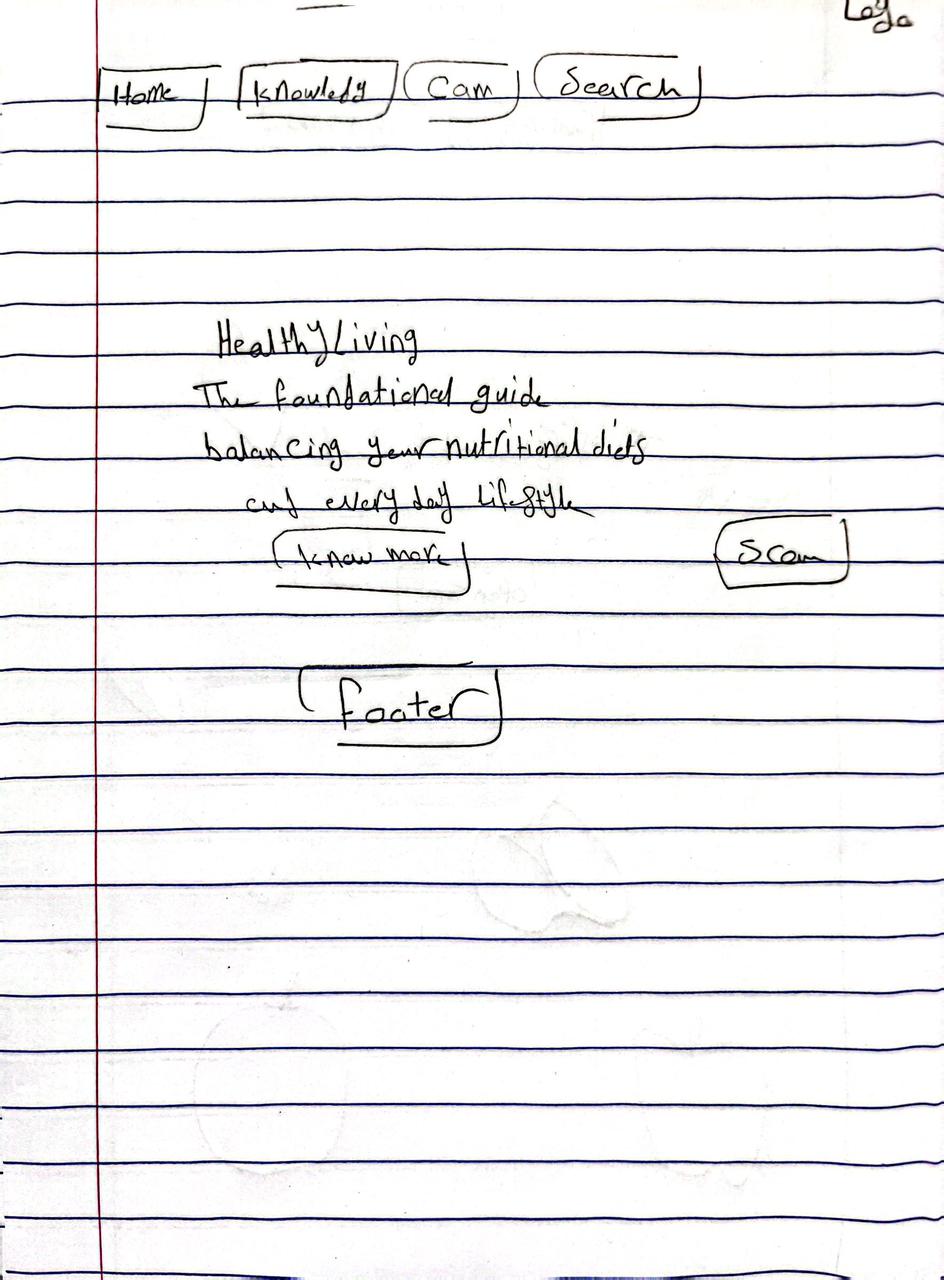 Logo
Home Knowledg Cam Search
Healthy Living
The foundational guide
balancing your nutritional diets
and every day lifestyle
Know more Scam
footer